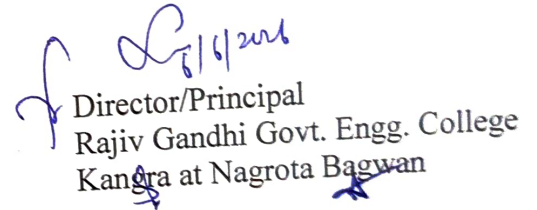 6/6/2026
Director/Principal
Rajiv Gandhi Govt. Engg. College
Kangra at Nagrota Bagwan